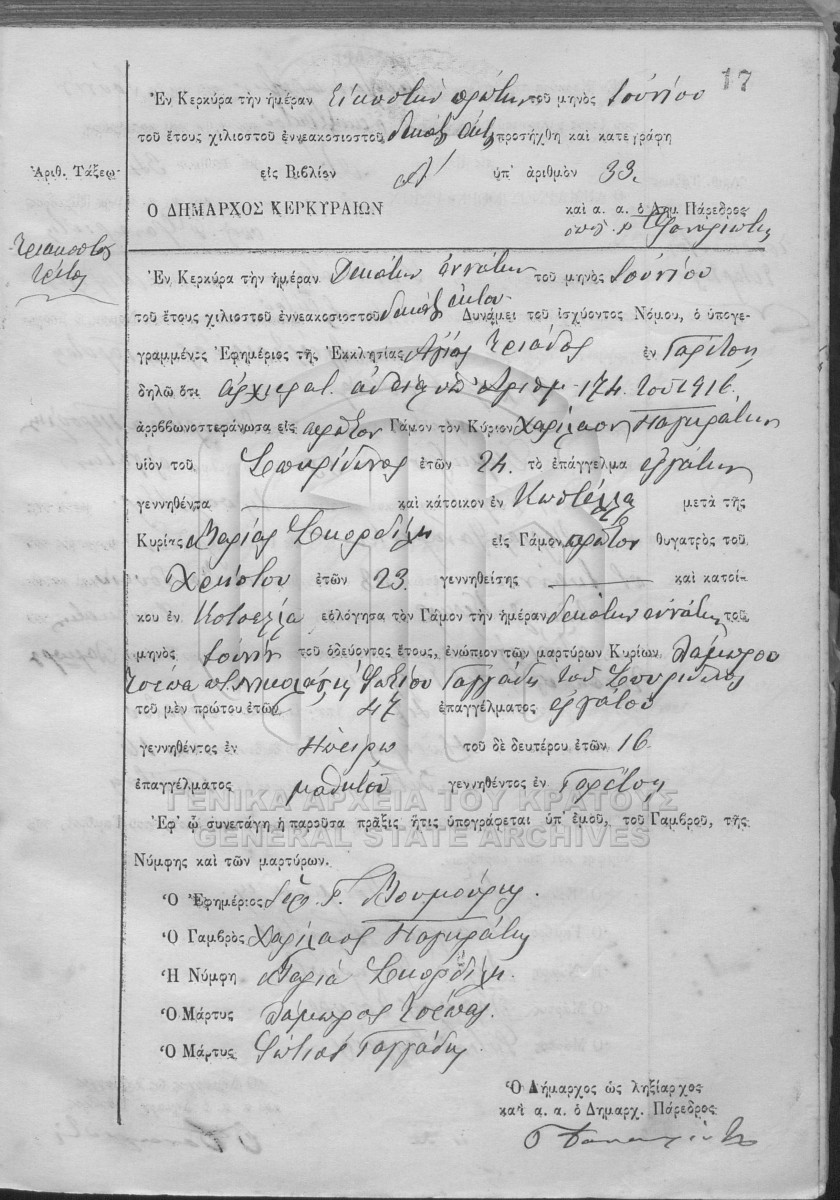 17
Ἐν Κερκύρᾳ τὴν ἡμέραν Εἰκοστὴν πρώτην τοῦ μηνὸς Ἰουνίου
τοῦ ἔτους χιλιοστοῦ ἐννεακοσιοστοῦ δεκάτ ἕκτ προσήχθη καὶ κατεγράφη
Ἀριθ. Τάξεω
εἰς Βιβλίον ὑπ' ἀριθμὸν 33.
Ο ΔΗΜΑΡΧΟΣ ΚΕΡΚΥΡΑΙΩΝ καὶ α. α. ὁ Δημ. Πάρεδρος
Τριακοστὸς
τρίτος
Ἐν Κερκύρᾳ τὴν ἡμέραν Δεκάτην ἐννάτην τοῦ μηνὸς Ἰουνίου
τοῦ ἔτους χιλιοστοῦ ἐννεακοσιοστοῦ δεκάτ ἕκτου Δυνάμει τοῦ ἰσχύοντος Νόμου, ὁ ὑπογε-
γραμμένος Ἐφημέριος τῆς Ἐκκλησίας Ἁγίας Τριάδος ἐν Γαρίτσῃ
δηλῶ ὅτι ἀρχιερατ. ἀδείᾳ ὑπ' ἀριθμ. 174 τοῦ 1916
ἀρραβωνοστεφάνωσα εἰς πρῶτον Γάμον τὸν Κύριον Χαρίλαον Παγκράτην
υἱὸν τοῦ Σπυρίδωνος ἐτῶν 24. τὸ ἐπάγγελμα ἐργάτην
γεννηθέντα καὶ κάτοικον ἐν μετὰ τῆς
Κυρίας Μαρίας Σκορδίλη εἰς Γάμον πρῶτον θυγατρὸς τοῦ
Χρήστου ἐτῶν 23. γεννηθείσης καὶ κατοί-
κου ἐν εὐλόγησα τὸν Γάμον τὴν ἡμέραν δεκάτην ἐννάτην τοῦ
μηνὸς Ἰουνίου τοῦ ὁδεύοντος ἔτους, ἐνώπιον τῶν μαρτύρων Κυρίων Λάμπρου
Τσέπα Φωτίου Γαγγάδη τοῦ Σπυρίδωνος
τοῦ μὲν πρώτου ἐτῶν 47 ἐπαγγέλματος ἐργάτου
γεννηθέντος ἐν Ἠπείρῳ τοῦ δὲ δευτέρου ἐτῶν 16
ἐπαγγέλματος μαθητοῦ γεννηθέντος ἐν Γαρίτσῃ
ΓΕΝΙΚΑ ΑΡΧΕΙΑ ΤΟΥ ΚΡΑΤΟΥΣ
GENERAL STATE ARCHIVES
Ἐφ' ᾧ συνετάγη ἡ παροῦσα πρᾶξις ἥτις ὑπογράφεται ὑπ' ἐμοῦ, τοῦ Γαμβροῦ, τῆς
Νύμφης καὶ τῶν μαρτύρων.
Ὁ Ἐφημέριος Ἱερ. Γ. Βουμούρης.
Ὁ Γαμβρὸς Χαρίλαος Παγκράτης
Ἡ Νύμφη Μαρία Σκορδίλη.
Ὁ Μάρτυς Λάμπρος Τσέπας.
Ὁ Μάρτυς Φώτιος Γαγγάδης.
Ὁ Δήμαρχος ὡς ληξίαρχος
καὶ α. α. ὁ Δημαρχ. Πάρεδρος